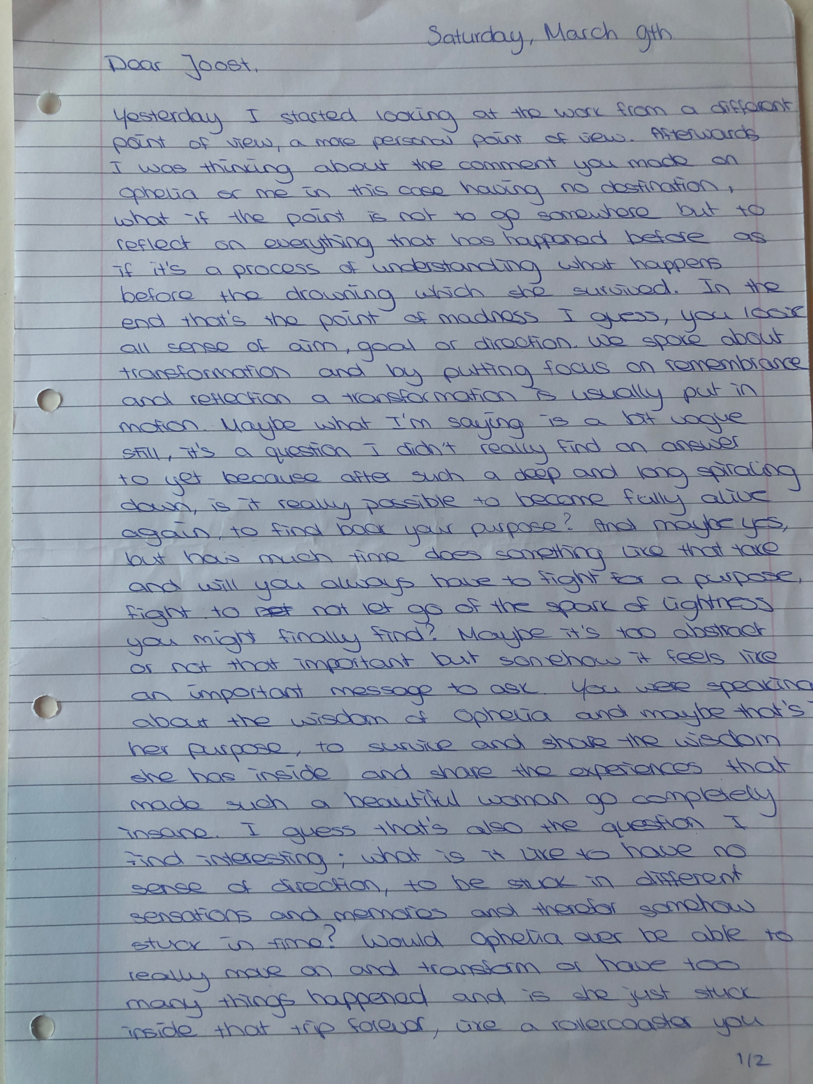 Saturday, March 9th
Dear Joost,
Yesterday I started looking at the work from a different
point of view, a more personal point of view. Afterwards
I was thinking about the comment you made on
Ophelia or me in this case having no destination,
what if the point is not to go somewhere but to
reflect on everything that has happened before as
if it's a process of understanding what happens
before the drowning which she survived. In the
end that's the point of madness I guess, you loose
all sense of aim, goal or direction. We spoke about
transformation and by putting focus on remembrance
and reflection a transformation is usually put in
motion. Maybe what I'm saying is a bit vague
still, it's a question I didn't really find an answer
to yet because after such a deep and long spiraling
down, is it really possible to become fully alive
again, to find back your purpose? And maybe yes,
but how much time does something like that take
and will you always have to fight for a purpose,
fight to not let go of the spark of lightness
you might finally find? Maybe it's too abstract
or not that important but somehow it feels like
an important message to ask. You were speaking
about the wisdom of Ophelia and maybe that's
her purpose, to survive and share the wisdom
she has inside and share the experiences that
made such a beautiful woman go completely
insane. I guess that's also the question I
find interesting; what is it like to have no
sense of direction, to be stuck in different
sensations and memories and therefor somehow
stuck in time? Would Ophelia ever be able to
really move on and transform or have too
many things happened and is she just stuck
inside that trip forever, like a rollercoaster you
1/2